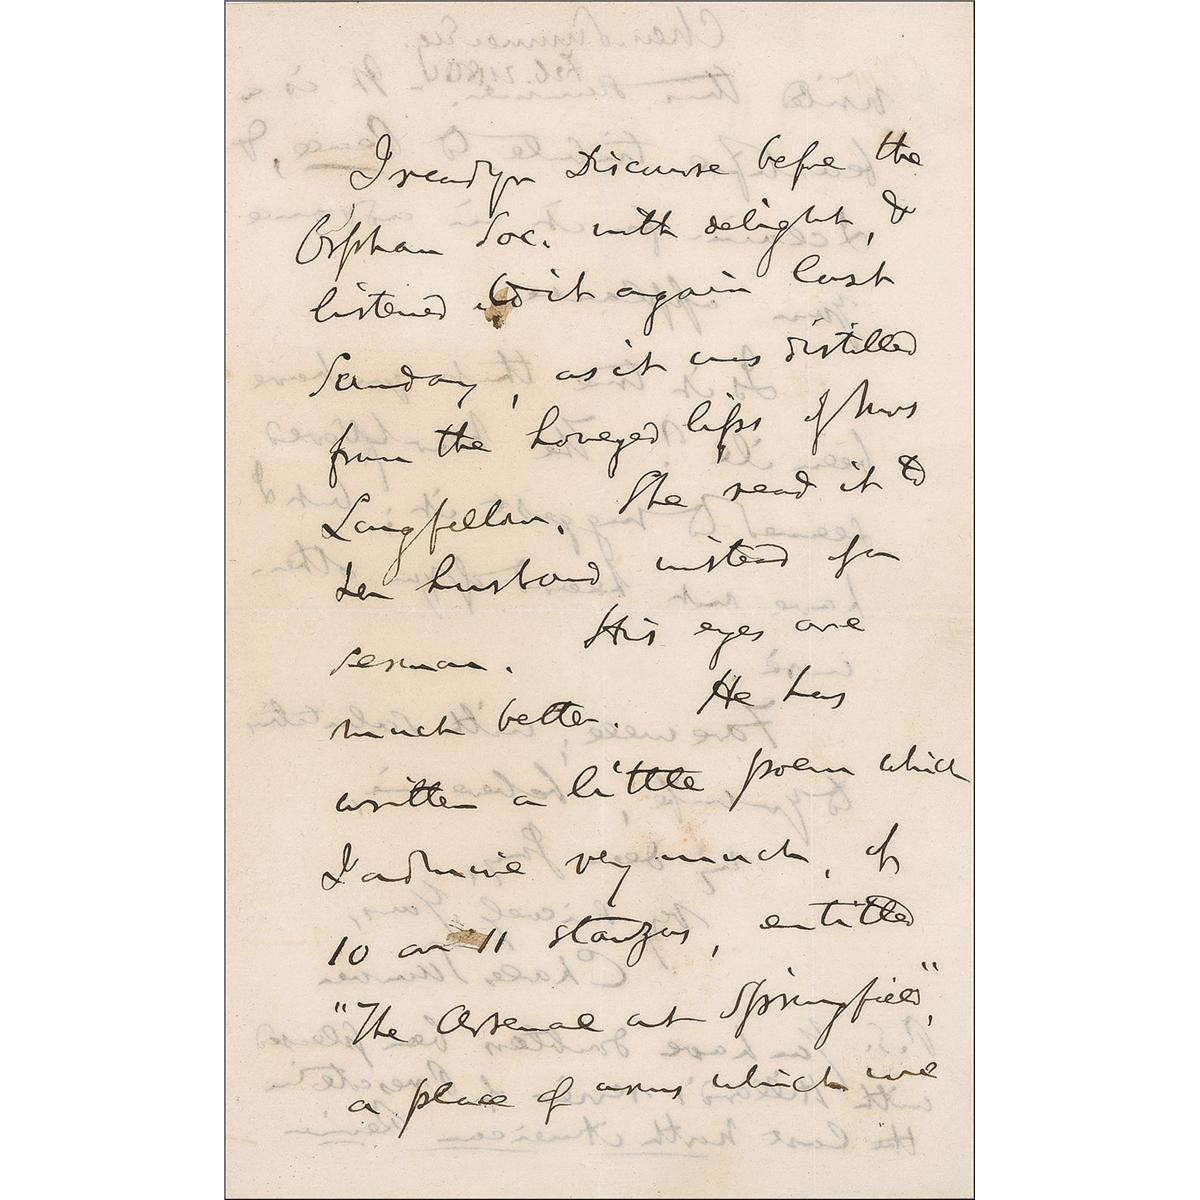 I read yr Discourse before the
Orphan Soc. with delight, &
listened to it again last
Sunday, as it was distilled
from the honeyed lips of Mrs
Longfellow. She read it to
her husband instead of a
sermon. His eyes are
much better. He has
written a little poem which
I admire very much, of
10 or 11 stanzas, entitled
"The Arsenal at Springfield",
a place of arms which we